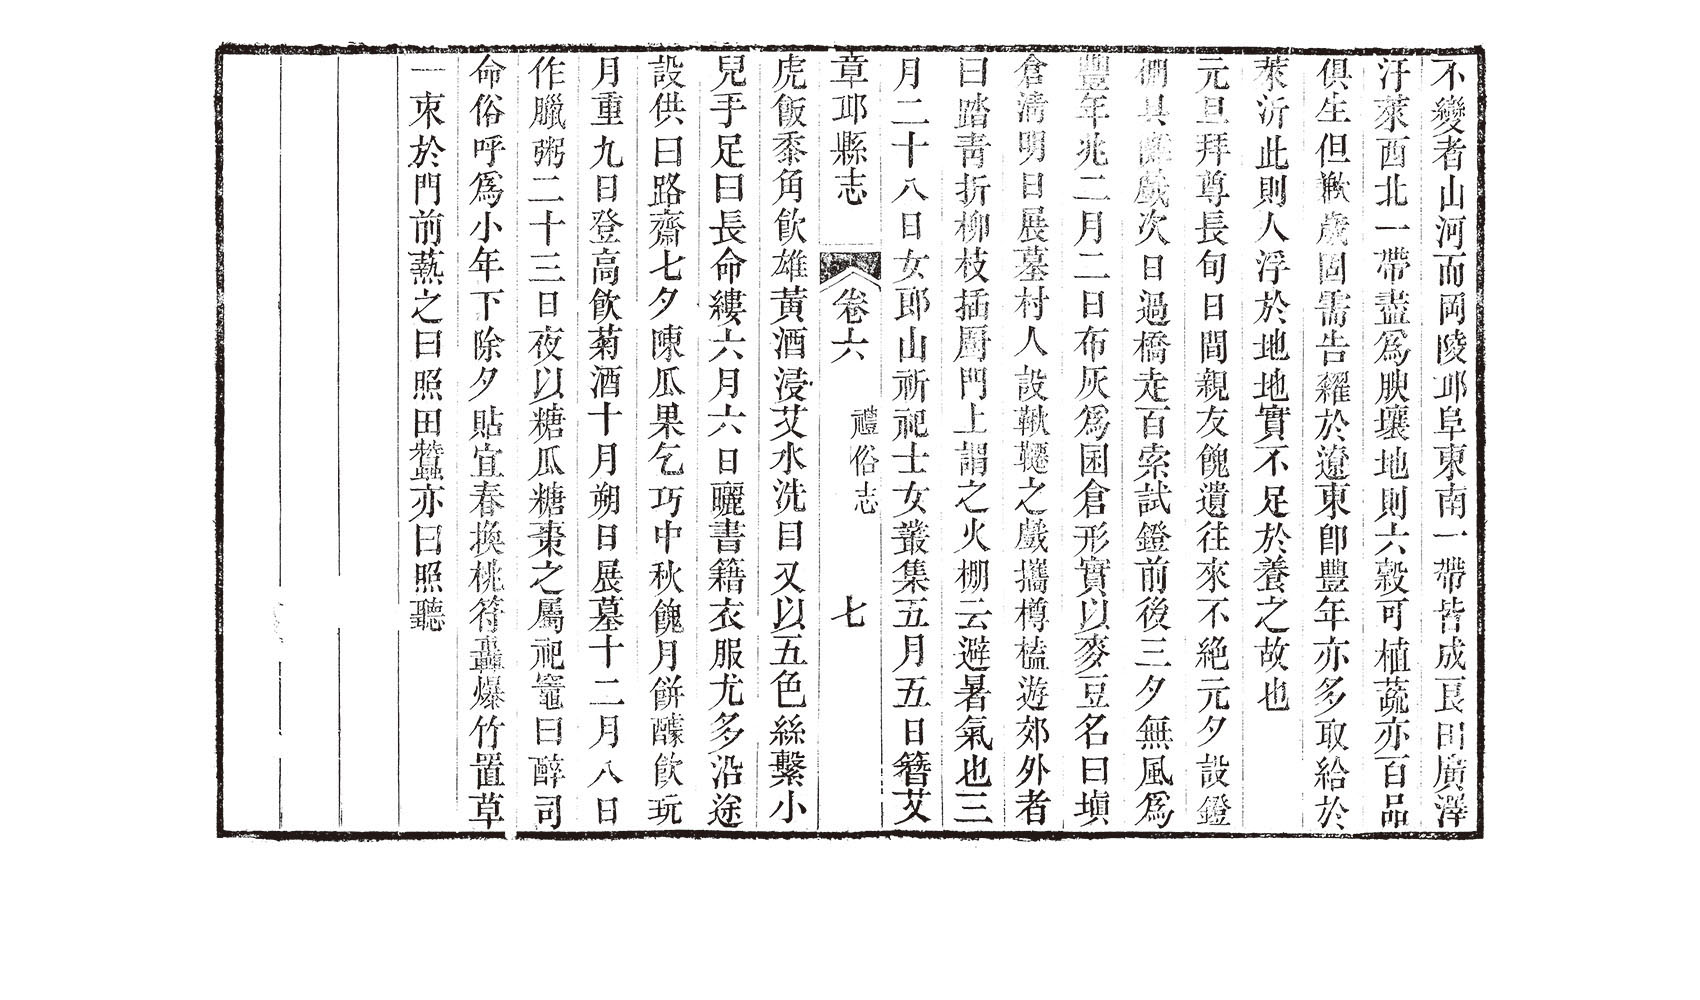 不變者山河而岡陵邱阜東南一帶皆成良田廣澤
汙萊西北一帶盡爲腴壤地則六穀可植蔬亦百品
俱生但歉歲固需告糴於遼東卽豐年亦多取給於
萊沂此則人浮於地地實不足於養之故也
元旦拜尊長旬日間親友餽遺往來不絕元夕設鐙
棚具雜戲次日過橋走百索試鐙前後三夕無風爲
豐年兆二月二日布灰爲囷倉形實以麥豆名曰塡
倉淸明日展墓村人設鞦韆之戲攜樽榼遊郊外者
曰踏靑折柳枝插厨門上謂之火棚云避暑氣也三
月二十八日女郎山祈祀士女叢集五月五日簪艾
章邱縣志 卷六 禮俗志 七
虎飯黍角飮雄黃酒浸艾水洗目又以五色絲繫小
兒手足曰長命縷六月六日曬書籍衣服尤多沿途
設供曰路齋七夕陳瓜果乞巧中秋餽月餅醵飮玩
月重九日登高飮菊酒十月朔日展墓十二月八日
作臘粥二十三日夜以糖瓜糖棗之屬祀竈曰醉司
命俗呼爲小年下除夕貼宜春換桃符轟爆竹置草
一束於門前爇之曰照田蠶亦曰照聽